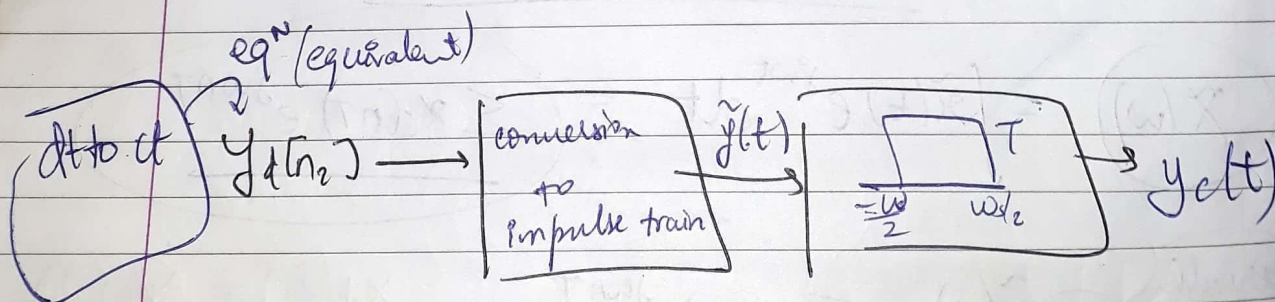 eqⁿ (equivalent)
dt to ct
y_d[n_2]
conversion
to
impulse train
ỹ(t)
T
-ω/2
ωs/2
y_c(t)